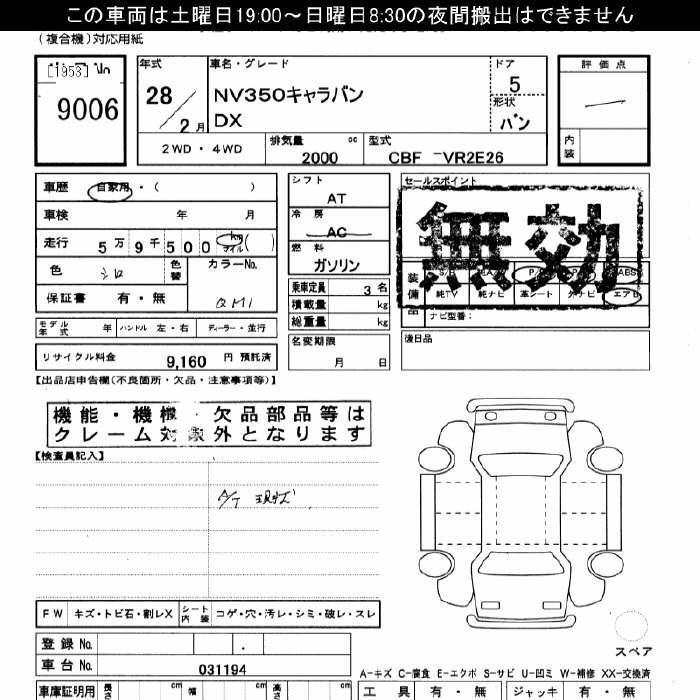 この車両は土曜日19:00～日曜日8:30の夜間搬出はできません
(複合機)対応用紙
[1953]
9006
年式
28
2月
車名・グレード
NV350キャラバン
DX
ドア
5
形状
バン
評価点
内装
2WD・4WD
排気量 cc
2000
型式
CBF -VR2E26
車歴 自家用・( )
車検 年 月
走行 5万9千500 kg マイル ( )
色 シロ 色替 カラーNo.
保証書 有・無 QM1
モデル年式 年 ハンドル 左・右 ディーラー・並行
リサイクル料金 9,160 円 預託済
シフト
AT
冷房
AC
燃料
ガソリン
乗車定員 3 名
積載量 kg
総重量 kg
名変期限
月 日
セールスポイント
無効
装備品
ABS
純TV 純ナビ 革シート 外ナビ エアB
ナビ型番：
後日品
【出品店申告欄(不良箇所・欠品・注意事項等)】
機能・機機・欠品部品等は
クレーム対象外となります
【検査員記入】
A/T 現状
FW キズ・トビ石・割レX シート内装 コゲ・穴・汚レ・シミ・破レ・スレ
登録No.
車台No. 031194
スペア
A-キズ C-腐食 E-エクボ S-サビ U-凹ミ W-補修 XX-交換済
車庫証明用 長さ cm 幅 cm 高さ cm
工具 有・無 ジャッキ 有・無